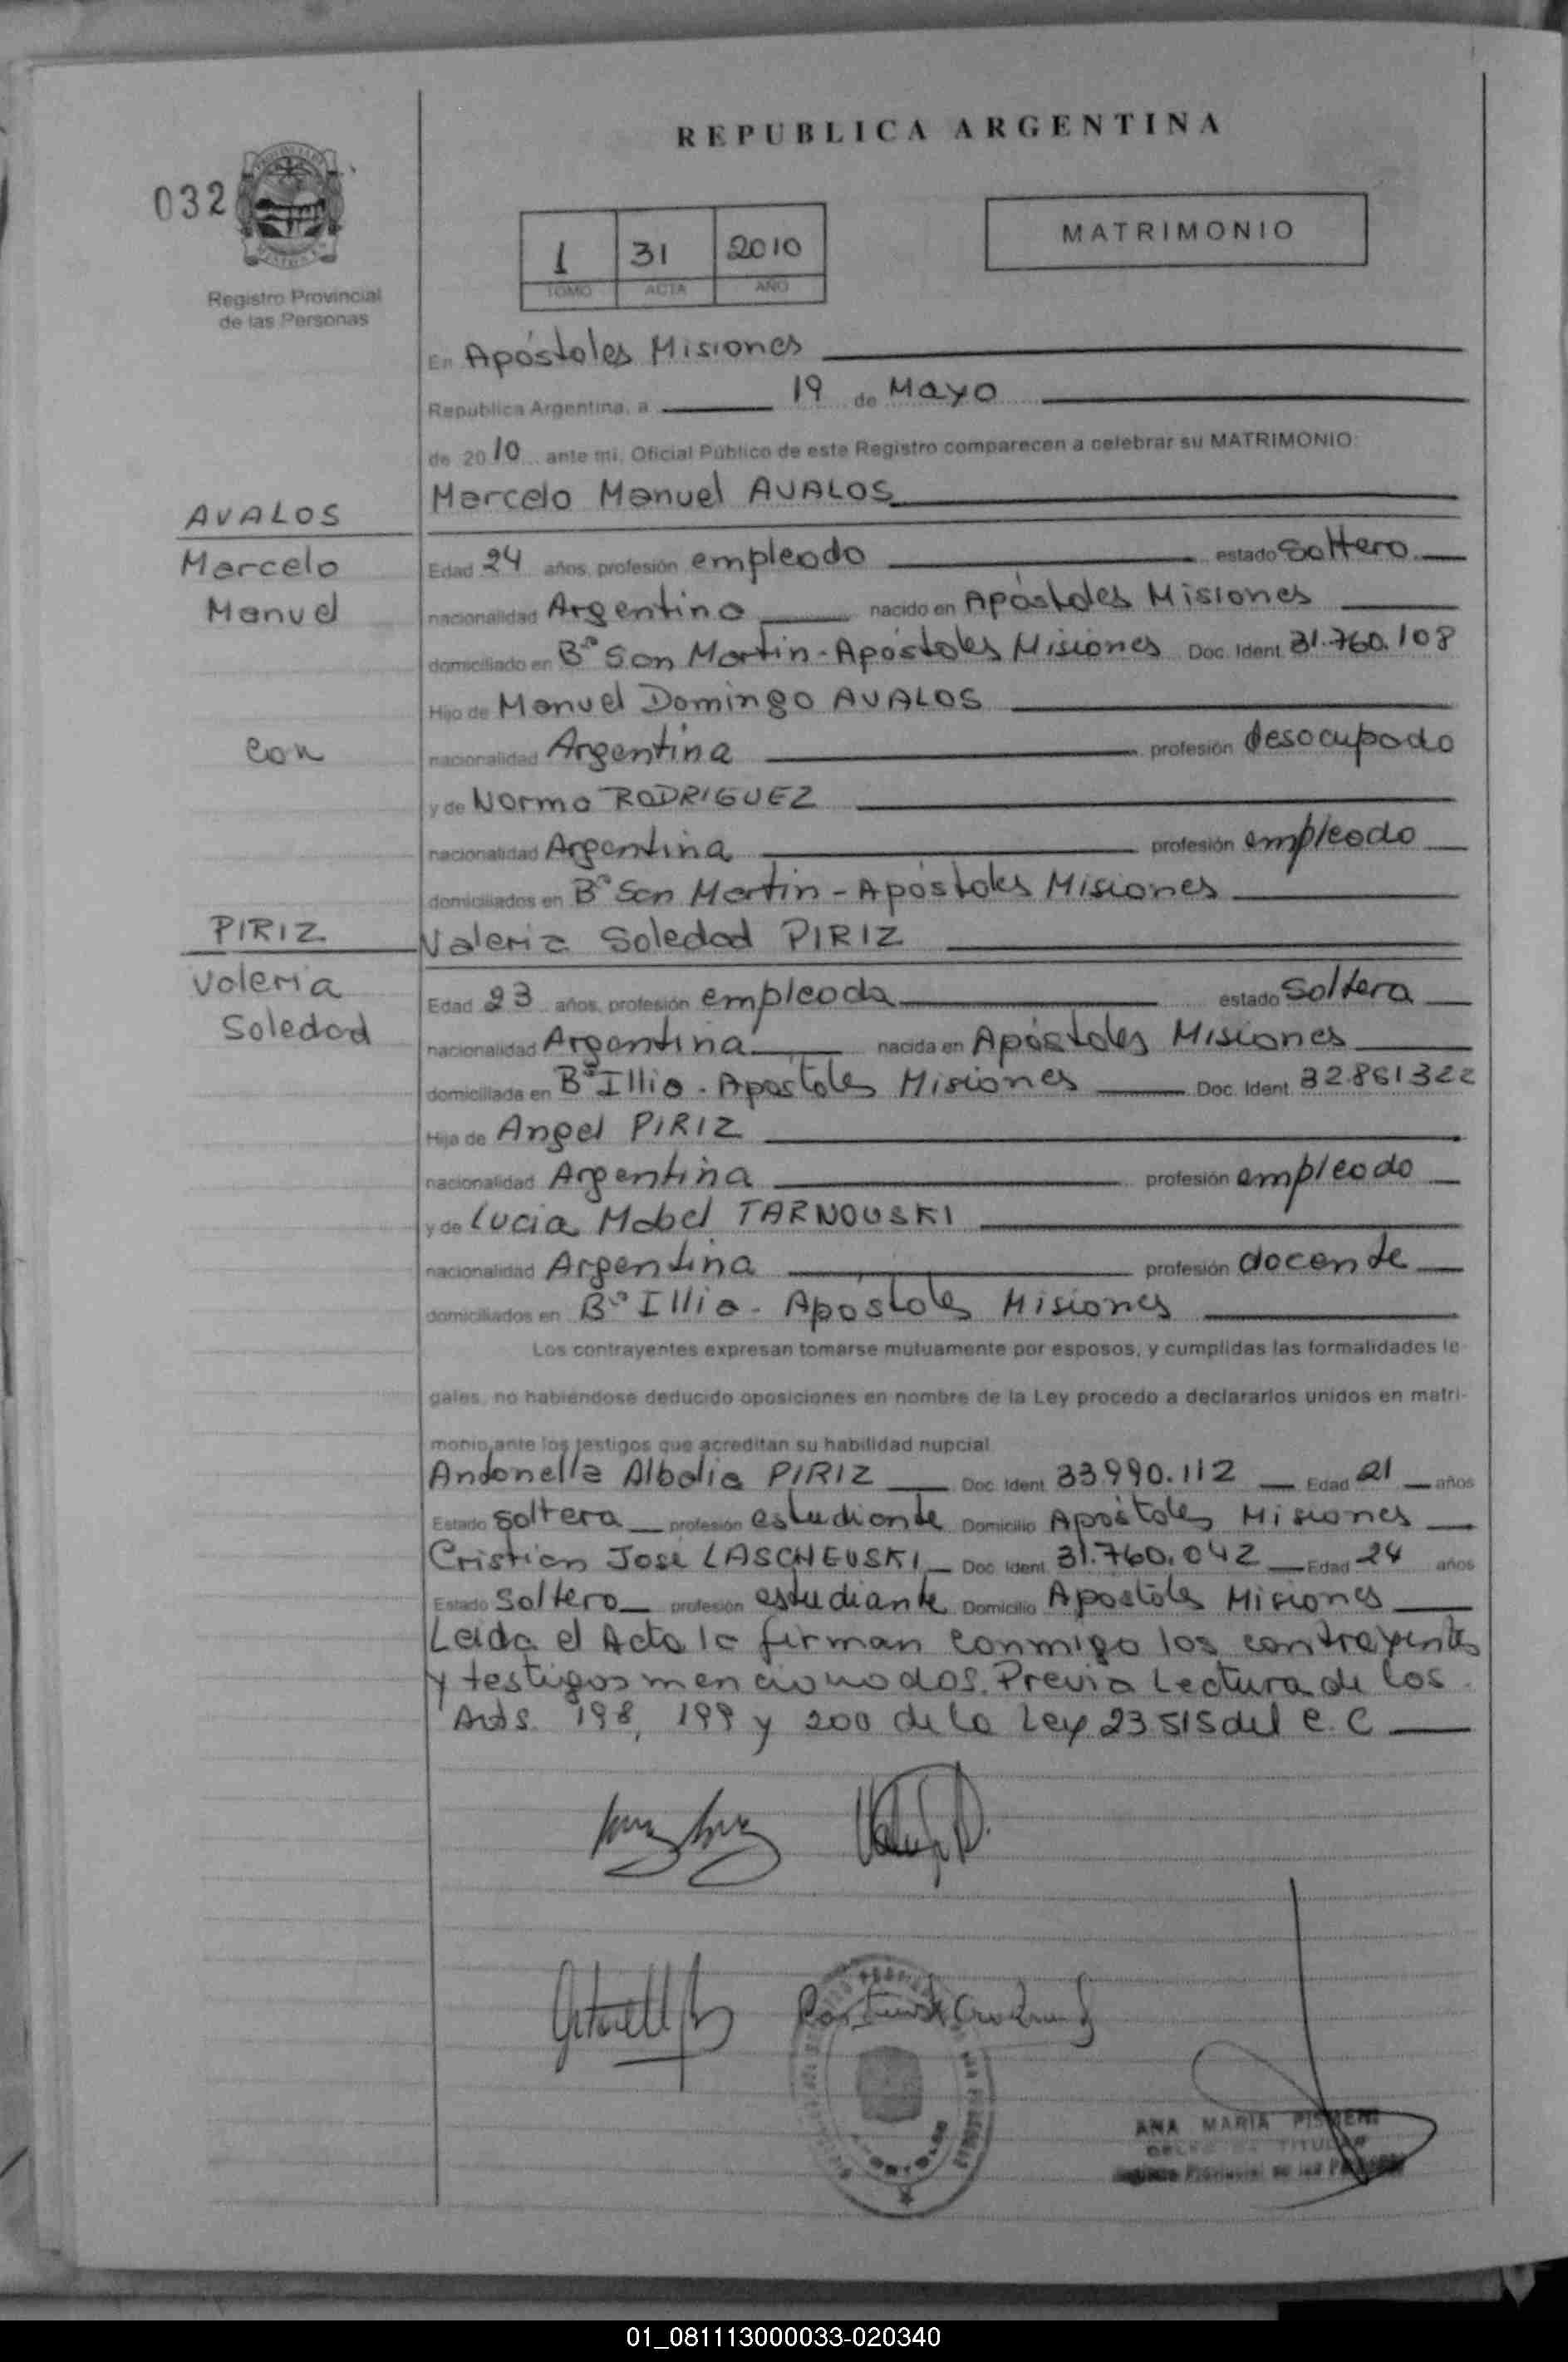 REPUBLICA ARGENTINA
032
Registro Provincial
de las Personas
1 31 2010
TOMO ACTA AÑO
MATRIMONIO
En Apóstoles Misiones
Republica Argentina, a 19 de Mayo
de 2010 ante mi, Oficial Público de este Registro comparecen a celebrar su MATRIMONIO:
Marcelo Manuel AVALOS
AVALOS
Marcelo
Manuel
Edad 24 años, profesión empleado estado Soltero
nacionalidad Argentina nacido en Apóstoles Misiones
domiciliado en Bº San Martin - Apóstoles Misiones Doc. Ident. 31.760.108
Hijo de Manuel Domingo AVALOS
con
nacionalidad Argentina profesión desocupado
y de Norma RODRIGUEZ
nacionalidad Argentina profesión empleado
domiciliados en Bº San Martin - Apóstoles Misiones
PIRIZ
Valeria Soledad PIRIZ
Valeria
Soledad
Edad 23 años, profesión empleada estado Soltera
nacionalidad Argentina nacida en Apóstoles Misiones
domiciliada en Bº Illia - Apóstoles Misiones Doc. Ident. 32.861322
Hija de Angel PIRIZ
nacionalidad Argentina profesión empleado
y de Lucia Mabel TARNOUSKI
nacionalidad Argentina profesión docente
domiciliados en Bº Illia - Apóstoles Misiones
Los contrayentes expresan tomarse mutuamente por esposos, y cumplidas las formalidades le-
gales, no habiéndose deducido oposiciones en nombre de la Ley procedo a declararlos unidos en matri-
monio ante los testigos que acreditan su habilidad nupcial
Antonella Albalia PIRIZ Doc. Ident. 33.990.112 Edad 21 años
Estado Soltera profesión estudiante Domicilio Apóstoles Misiones
Cristian José LASCHEUSKI Doc. Ident. 31.760.042 Edad 24 años
Estado Soltero profesión estudiante Domicilio Apóstoles Misiones
Leida el Acta la firman conmigo los contrayentes
y testigos mencionados. Previa Lectura de los
Arts. 198, 199 y 200 de la Ley 23515 del C. C
ANA MARIA
TITULAR
Provincial de las
01_081113000033-020340